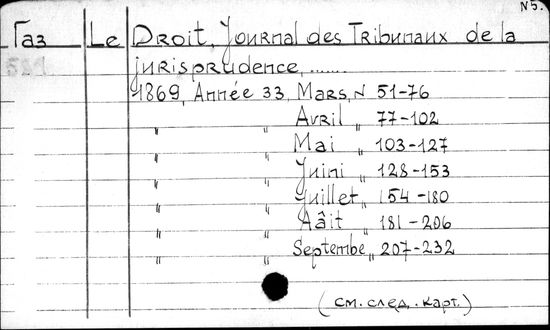 N5.
Газ Le Droit, Journal des Tribunaux de la
jurisprudence, ......
1869, Année 33, Mars, N 51-76
" " Avril " 77-102
" " Mai " 103-127
" " Juini " 128-153
" " Juillet " 154-180
" " Aâit " 181-206
" " Septembe " 207-232
(см. след. карт.)